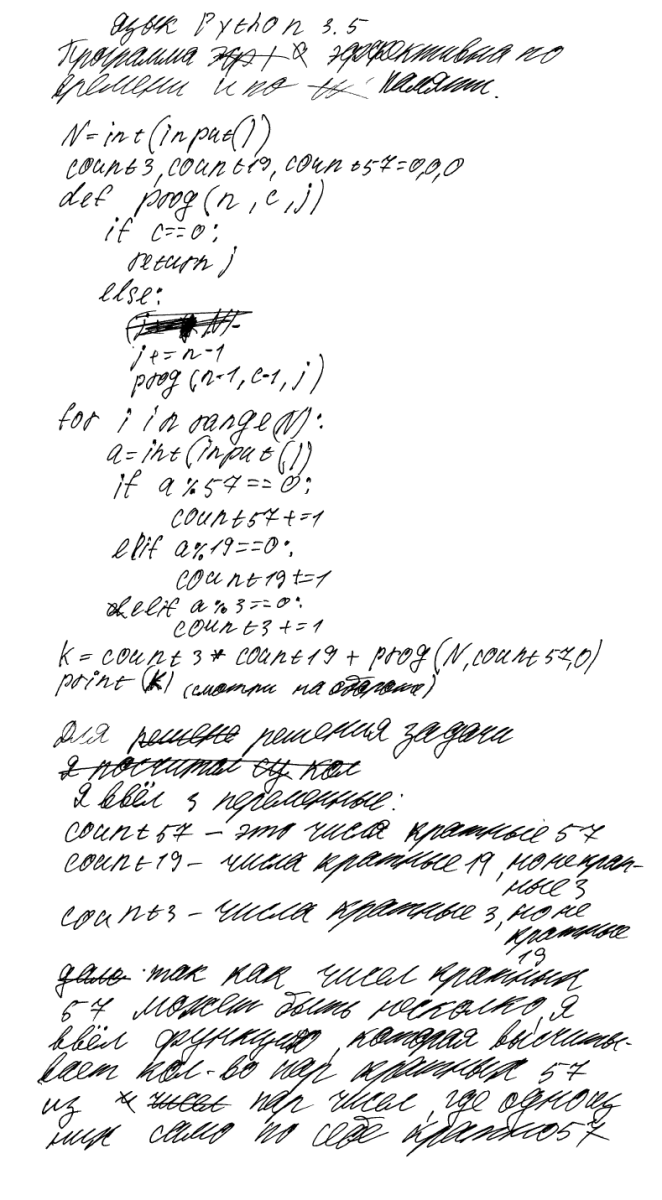 язык Python 3.5
Программа эффективна по
времени и по памяти.
N=int(input())
count3,count19,count57=0,0,0
def prog(n,c,j)
if c==0:
return j
else:
j+=n-1
prog(n-1,c-1,j)
for i in range(N):
a=int(input())
if a%57==0:
count57+=1
elif a%19==0:
count19+=1
elif a%3==0:
count3+=1
k=count3*count19+prog(N,count57,0)
print(k) (смотри на обороте)
Для решения задачи
я посчитал кол
Я ввёл 3 переменные:
count57 - это числа кратные 57
count19 - числа кратные 19, но не крат-
ные 3
count3 - числа кратные 3, но не
кратные
19
так как чисел кратных
57 может быть несколько, я
ввёл функцию, которая высчиты-
вает кол-во пар кратных 57
из чисел пар чисел, где одно из
них само по себе кратно 57